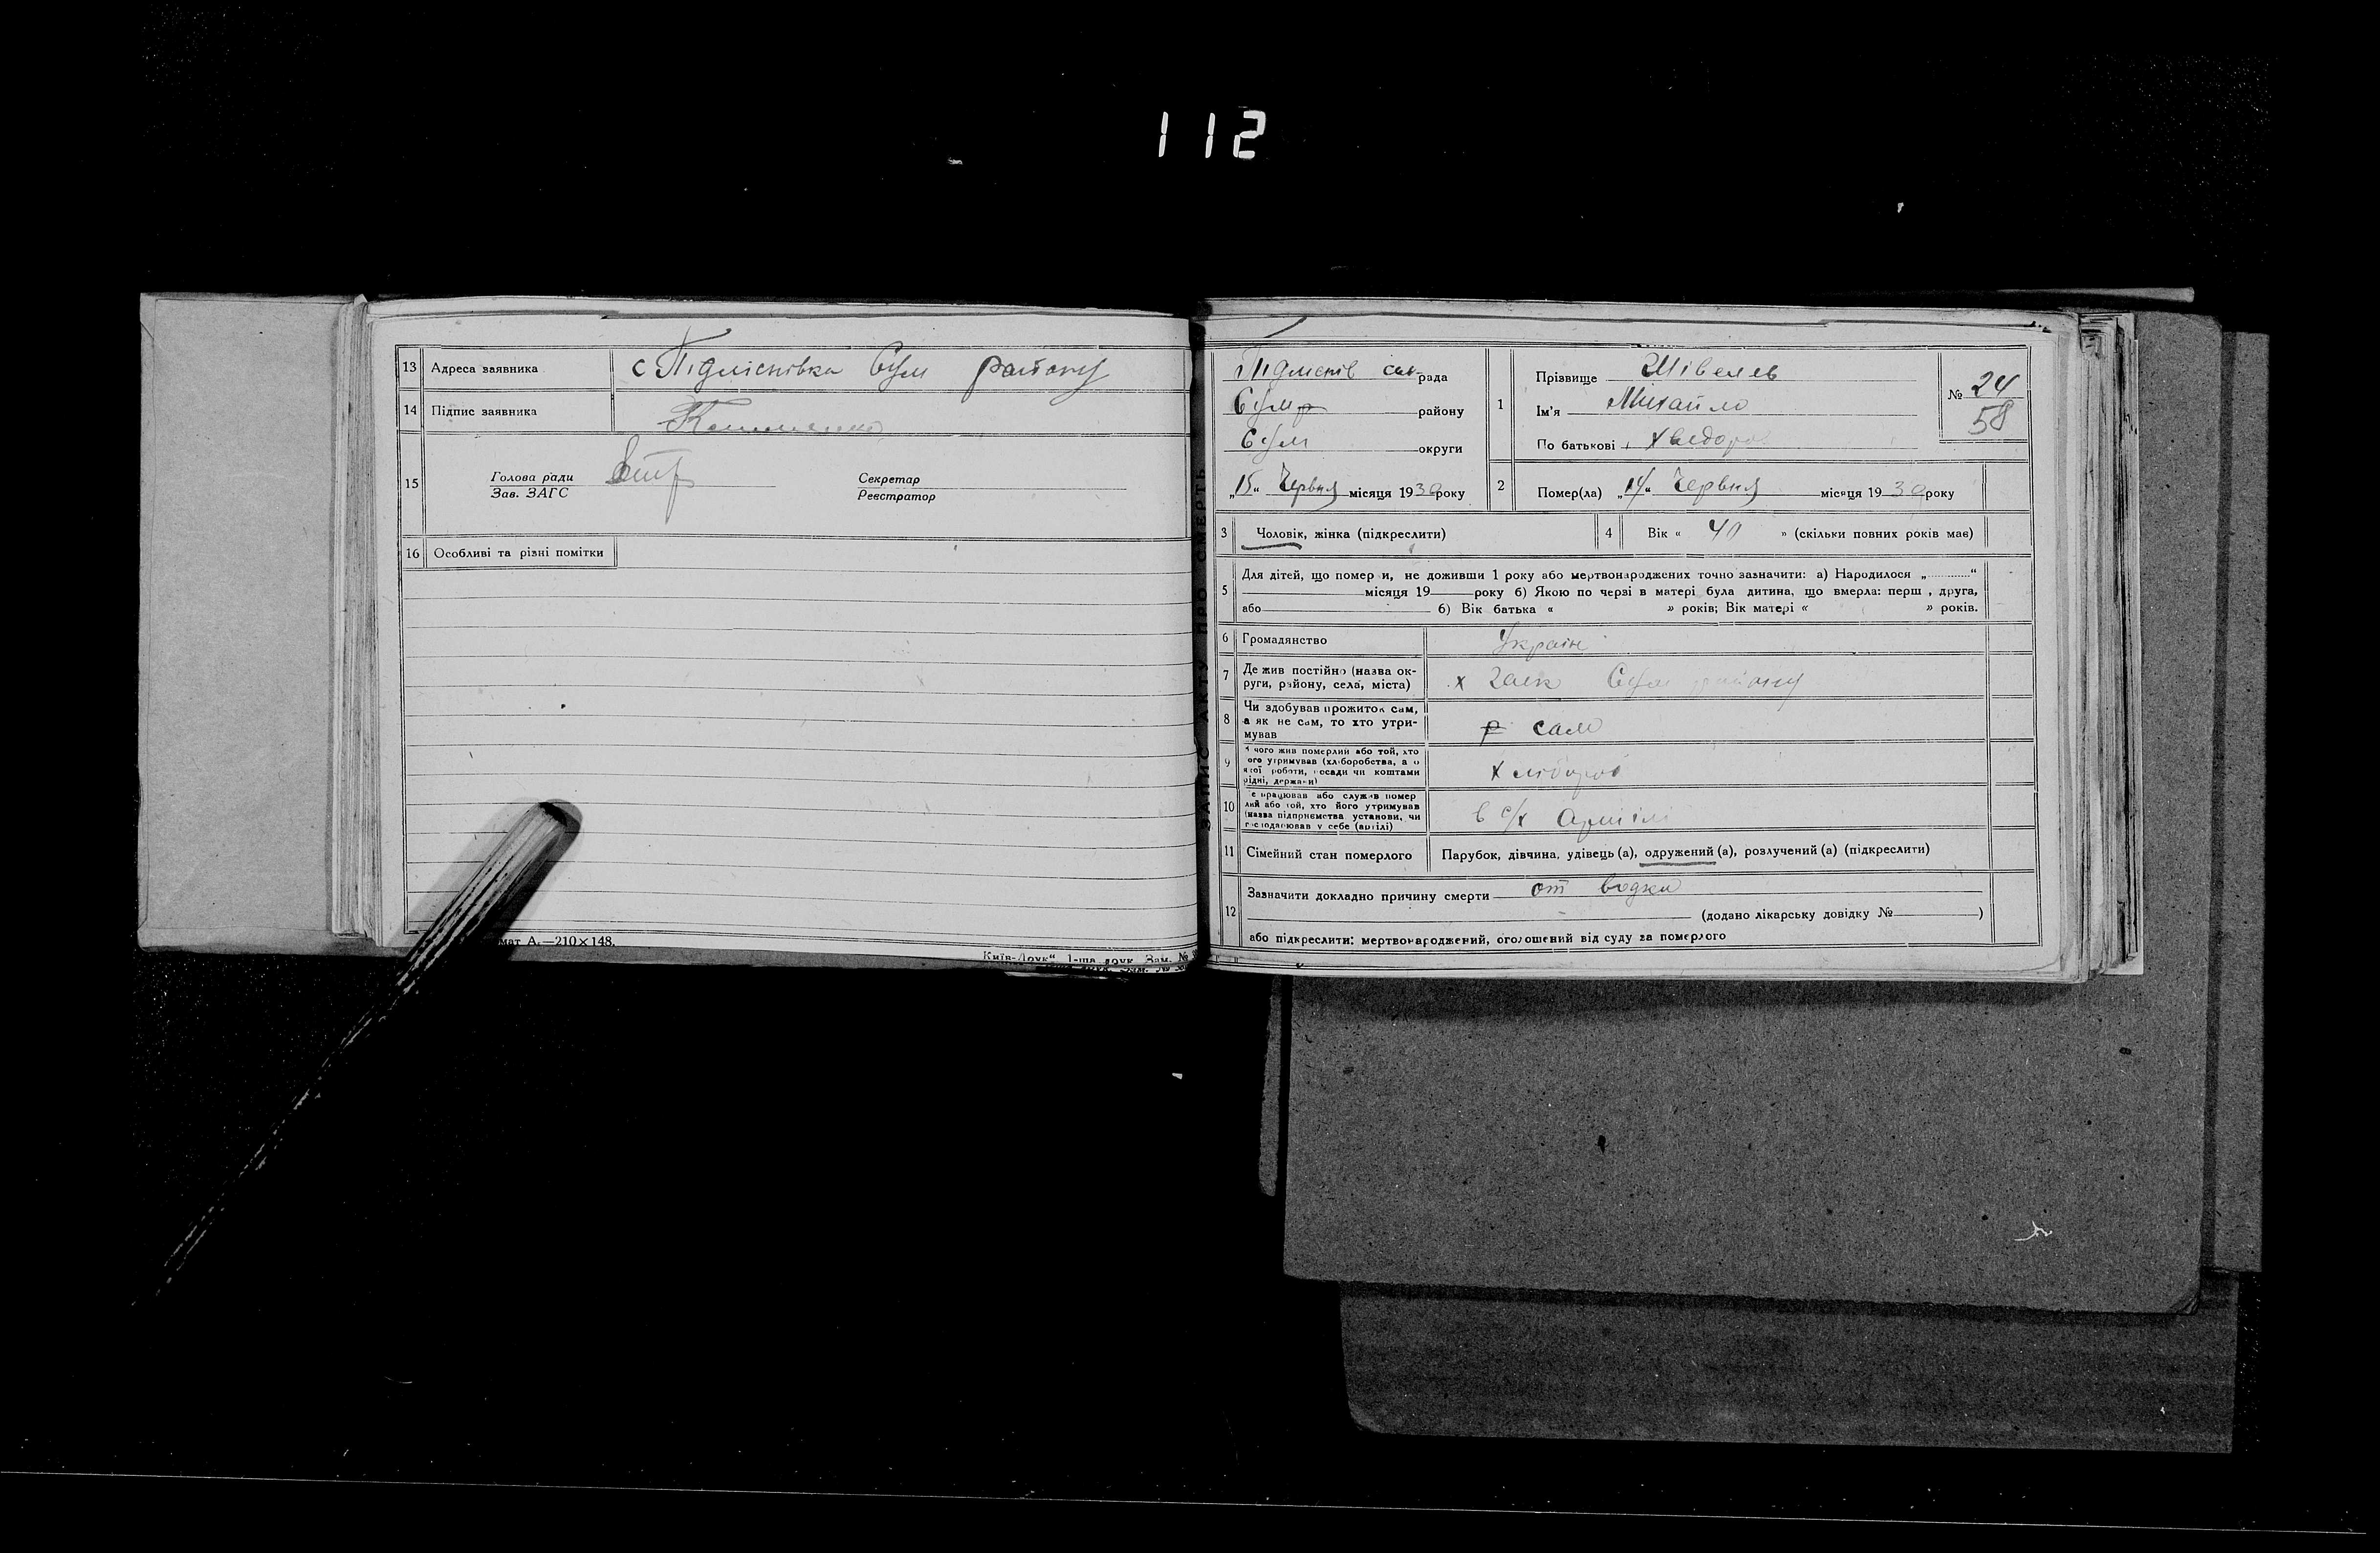 112
13 Адреса заявника с Підліснівка Сум району
14 Підпис заявника
15 Голова ради Секретар
Зав. ЗАГС Реєстратор
16 Особливі та різні помітки
мат А.—210×148.
Київ-Друк“ 1-ша друк. Зам. №
ЗАПИС АКТУ ПРО СМЕРТЬ
Підліснів сіл-рада
Сумр району
Сум округи
„15“ Червня місяця 1930 року
1 Прізвище Шівелев
Ім'я Михайло
По батькові Хведоро
№ 24
58
2 Помер(ла) „14“ Червня місяця 1930 року
3 Чоловік, жінка (підкреслити)
4 Вік « 40 » (скільки повних років має)
5 Для дітей, що помер и, не доживши 1 року або мертвонароджених точно зазначити: а) Народилося „............“
місяця 19 року б) Якою по черзі в матері була дитина, що вмерла: перш , друга,
або б) Вік батька « » років; Вік матері « » років.
6 Громадянство Україн
7 Де жив постійно (назва ок-
руги, району, села, міста) х Сум району
8 Чи здобував прожиток сам,
а як не сам, то хто утри-
мував сам
9 чого жив померлий або той, хто
ого утримував (хліборобства, а о
якої роботи, посади чи коштами
рідні, держави) Хлібороб
10 е працював або служив помер
лий або той, хто його утримував
(назва підприємства установи, чи
господарював у себе (артілі) в с/х Артілі
11 Сімейний стан померлого Парубок, дівчина, удівець (а), одружений (а), розлучений (а) (підкреслити)
12 Зазначити докладно причину смерти от водки
(додано лікарську довідку № )
або підкреслити: мертвонароджений, оголошений від суду за померлого